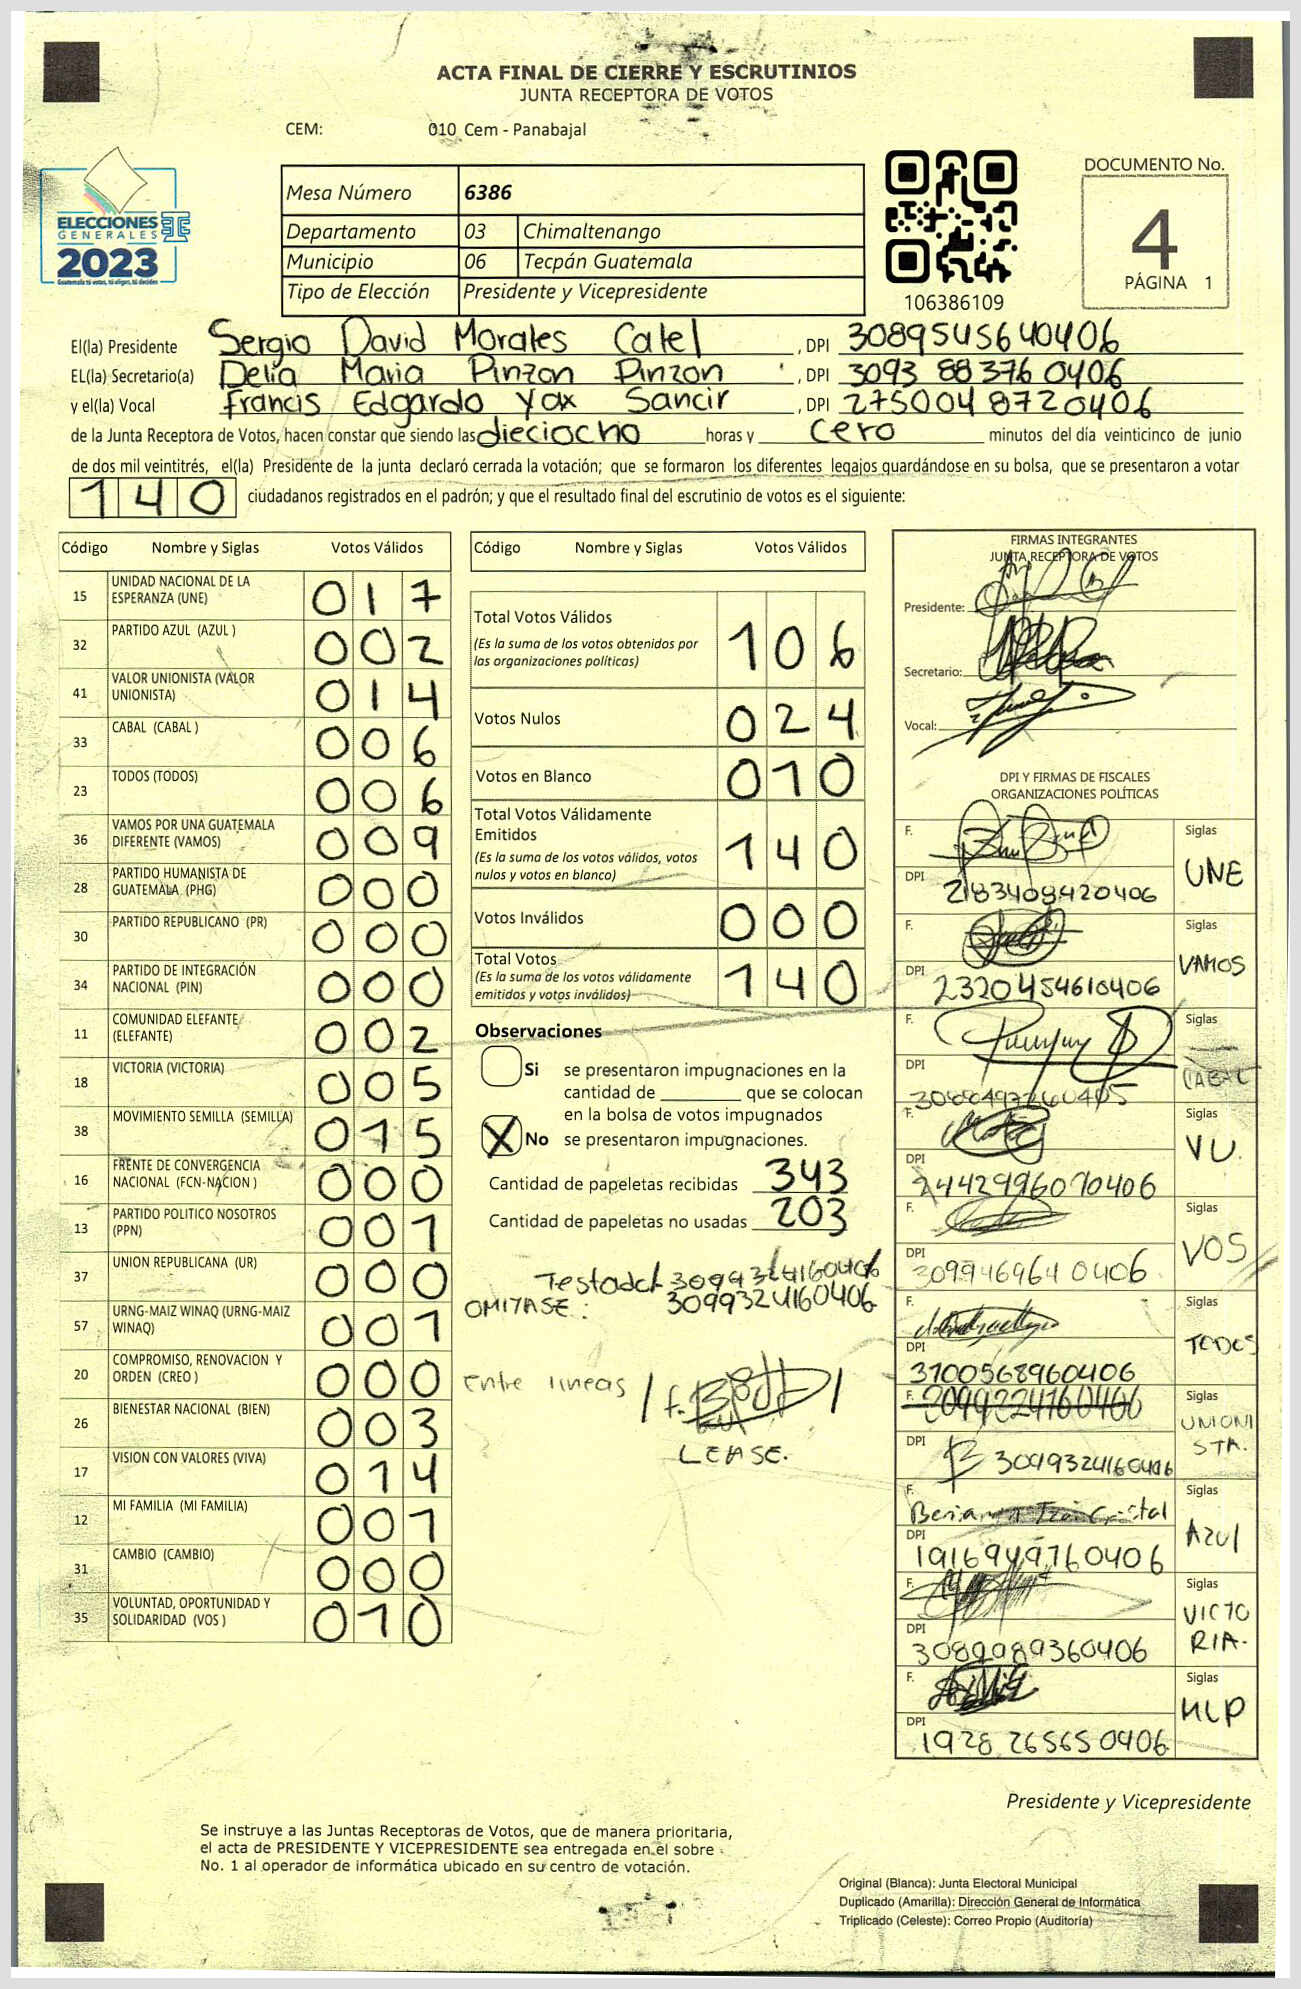 ACTA FINAL DE CIERRE Y ESCRUTINIOS
JUNTA RECEPTORA DE VOTOS
CEM: 010 Cem - Panabajal
ELECCIONES
GENERALES
2023
Guatemala tú votas, tú eliges, tú decides
Mesa Número 6386
Departamento 03 Chimaltenango
Municipio 06 Tecpán Guatemala
Tipo de Elección Presidente y Vicepresidente
106386109
DOCUMENTO No.
4
PÁGINA 1
El(la) Presidente Sergio David Morales Catel, DPI 3089545640406
EL(la) Secretario(a) Delia Maria Pinzon Pinzon, DPI 3093 88376 0406
y el(la) Vocal Francis Edgardo Yax Sancir, DPI 2750048720406
de la Junta Receptora de Votos, hacen constar que siendo las dieciocho horas y cero minutos del día veinticinco de junio
de dos mil veintitrés, el(la) Presidente de la junta declaró cerrada la votación; que se formaron los diferentes legajos guardándose en su bolsa, que se presentaron a votar
140 ciudadanos registrados en el padrón; y que el resultado final del escrutinio de votos es el siguiente:
Código Nombre y Siglas Votos Válidos
15 UNIDAD NACIONAL DE LA ESPERANZA (UNE) 017
32 PARTIDO AZUL (AZUL ) 002
41 VALOR UNIONISTA (VALOR UNIONISTA) 014
33 CABAL (CABAL ) 006
23 TODOS (TODOS) 006
36 VAMOS POR UNA GUATEMALA DIFERENTE (VAMOS) 009
28 PARTIDO HUMANISTA DE GUATEMALA (PHG) 000
30 PARTIDO REPUBLICANO (PR) 000
34 PARTIDO DE INTEGRACIÓN NACIONAL (PIN) 000
11 COMUNIDAD ELEFANTE (ELEFANTE) 002
18 VICTORIA (VICTORIA) 005
38 MOVIMIENTO SEMILLA (SEMILLA) 015
16 FRENTE DE CONVERGENCIA NACIONAL (FCN-NACION ) 000
13 PARTIDO POLITICO NOSOTROS (PPN) 001
37 UNION REPUBLICANA (UR) 000
57 URNG-MAIZ WINAQ (URNG-MAIZ WINAQ) 001
20 COMPROMISO, RENOVACION Y ORDEN (CREO ) 000
26 BIENESTAR NACIONAL (BIEN) 003
17 VISION CON VALORES (VIVA) 014
12 MI FAMILIA (MI FAMILIA) 001
31 CAMBIO (CAMBIO) 000
35 VOLUNTAD, OPORTUNIDAD Y SOLIDARIDAD (VOS ) 010
Código Nombre y Siglas Votos Válidos
Total Votos Válidos 106
(Es la suma de los votos obtenidos por
las organizaciones políticas)
Votos Nulos 024
Votos en Blanco 010
Total Votos Válidamente
Emitidos 140
(Es la suma de los votos válidos, votos
nulos y votos en blanco)
Votos Inválidos 000
Total Votos 140
(Es la suma de los votos válidamente
emitidos y votos inválidos)
Observaciones
Si se presentaron impugnaciones en la
cantidad de ________ que se colocan
en la bolsa de votos impugnados
X No se presentaron impugnaciones.
Cantidad de papeletas recibidas 343
Cantidad de papeletas no usadas 203
3099324160406
OMITASE: 3099324160406
Entre lineas
LEASE.
FIRMAS INTEGRANTES
JUNTA RECEPTORA DE VOTOS
Presidente:
Secretario:
Vocal:
DPI Y FIRMAS DE FISCALES
ORGANIZACIONES POLÍTICAS
F. Siglas UNE
DPI 2183408420406
F. Siglas VAMOS
DPI 2320454610406
F. Siglas CABAL
DPI
F. Siglas VU.
DPI 2442996070406
F. Siglas VOS
DPI 3099469640406
F. Siglas TODOS
DPI 3700568960406
F. Siglas UNIONISTA.
DPI 3099324160406
F. Siglas AZUl
DPI 1916949760406
F. Siglas VICTORIA.
DPI 3089989360406
F. Siglas MLP
DPI 1928 26565 0406
Presidente y Vicepresidente
Se instruye a las Juntas Receptoras de Votos, que de manera prioritaria,
el acta de PRESIDENTE Y VICEPRESIDENTE sea entregada en el sobre
No. 1 al operador de informática ubicado en su centro de votación.
Original (Blanca): Junta Electoral Municipal
Duplicado (Amarilla): Dirección General de Informática
Triplicado (Celeste): Correo Propio (Auditoría)